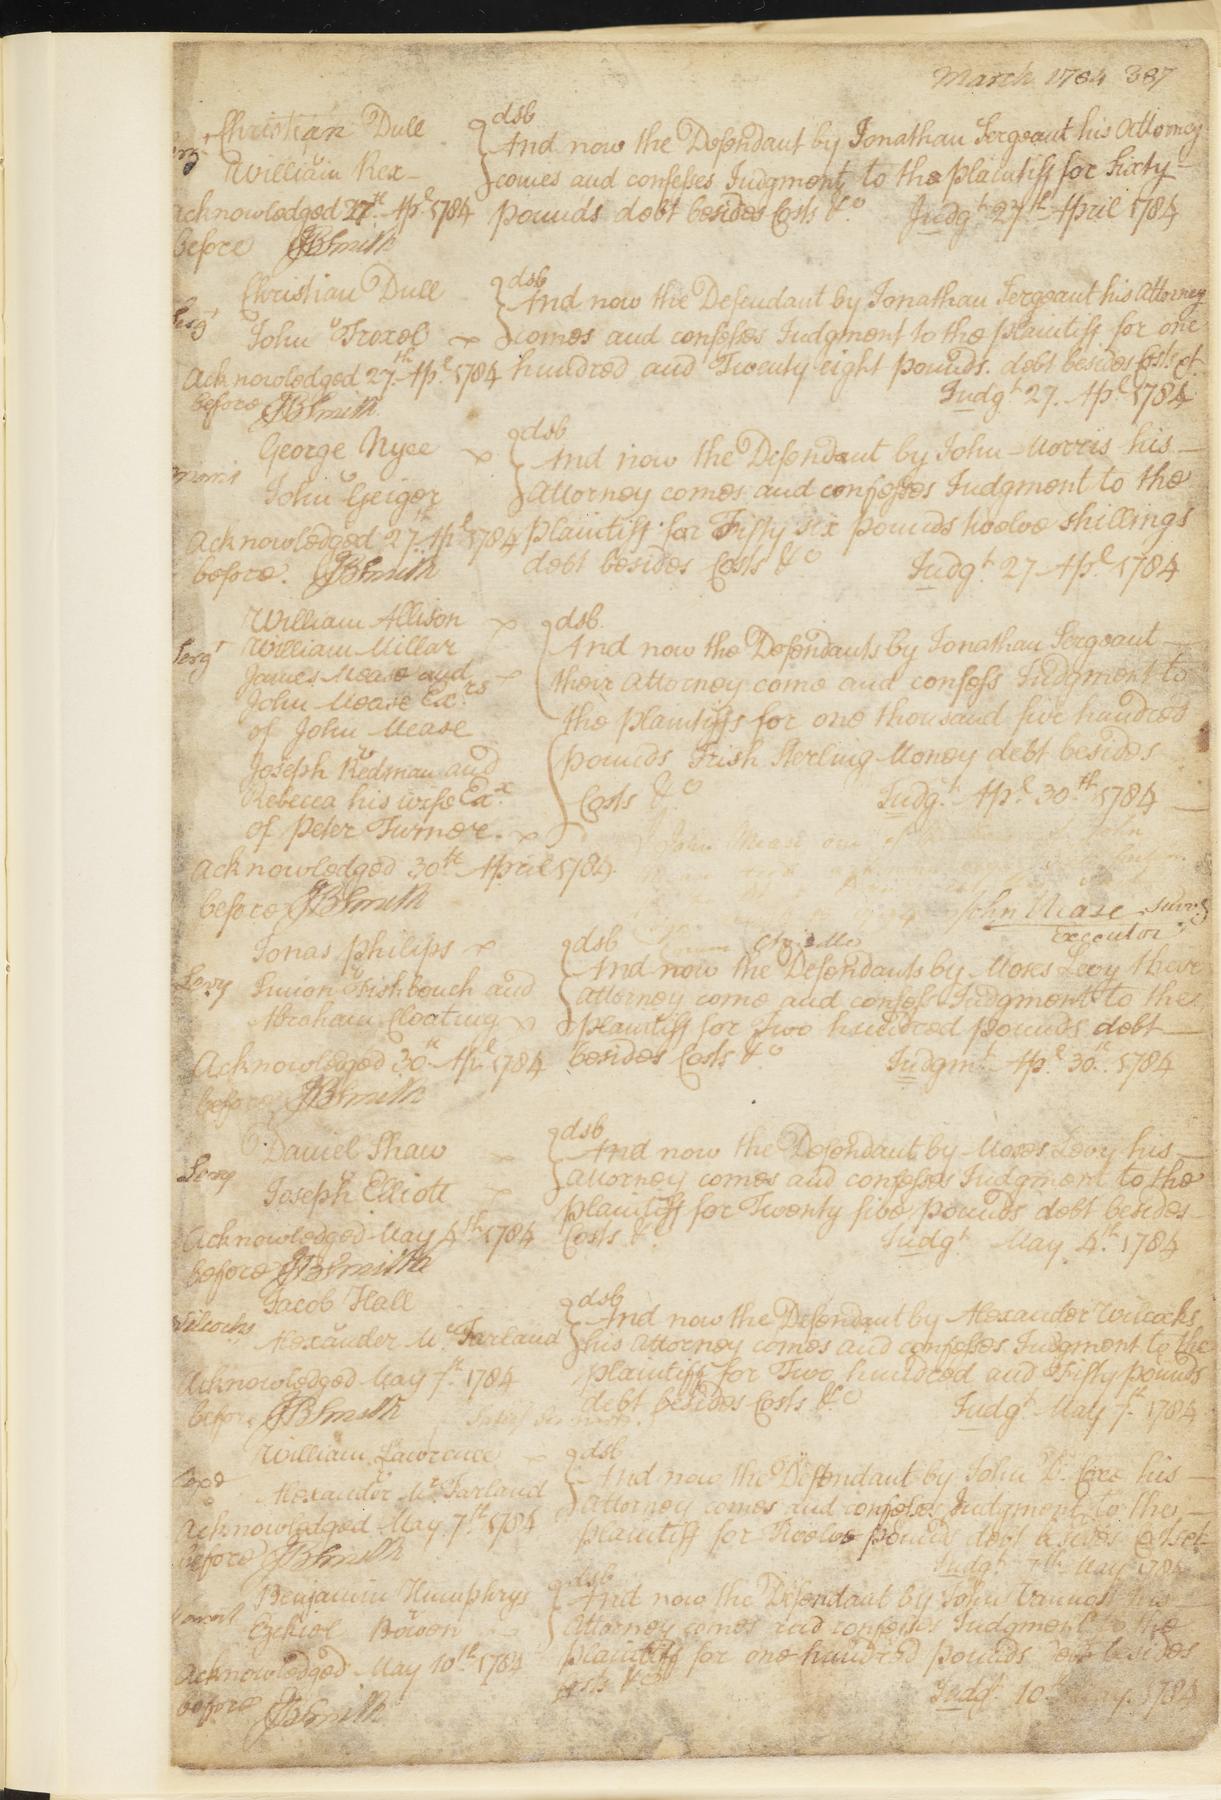 March 1784 387
Christian Dull
v
William Rex
Acknowledged 27th Apl 1784
before JBSmith
dsb
And now the Defendant by Jonathan Sergeant his Attorney
comes and confesses Judgment to the plaintiff for Sixty
pounds debt besides Costs &c Judgt 27th April 1784
Sergt
Christian Dull
v
John Troxel
Acknowledged 27th Apl 1784
before JBSmith
dsb
And now the Defendant by Jonathan Sergeant his Attorney
comes and confesses Judgment to the plaintiff for one
hundred and Twenty eight pounds. debt besides Costs &c
Judgt 27. Apl 1784
Morris
George Nyce
v
John Geiger
Acknowledged 27th Apl 1784
before. JBSmith
dsb
And now the Defendant by John Morris his
Attorney comes and confesses Judgment to the
plaintiff for Fifty six pounds twelve shillings
debt besides Costs &c Judgt 27 Apl 1784
Sergt
William Allison
William Millar
James Mease and
John Mease Exrs
of John Mease
v
Joseph Redman and
Rebecca his wife Exx
of Peter Turner.
Acknowledged 30th April 1784
before JBSmith
dsb.
And now the Defendants by Jonathan Sergeant
their Attorney come and confess Judgment to
the plaintiffs for one thousand five hundred
pounds Irish Sterling Money debt besides
Costs &c Judgt Apl 30th 1784
John Mease one of John
John Mease Survg
Executor
Levy
Jonas Philips
v
and
Abraham
Acknowledged 30th Apl 1784
before JBSmith
dsb
And now the Defendants by Moses Levy their
Attorney come and confess Judgment to the
plaintiff for Two hundred pounds debt
besides Costs &c Judgmt Apl 30th 1784
Levy
Daniel Shaw
v
Joseph Elliott
Acknowledged May 4th 1784
before JBSmith
dsb
And now the Defendant by Moses Levy his
Attorney comes and confesses Judgment to the
plaintiff for Twenty five pounds debt besides
Costs &c Judgt May 4th 1784
Wilcocks
Jacob Hall
v
Alexander McFarland
Acknowledged May 7th 1784
before JBSmith
dsb
And now the Defendant by Alexander Wilcocks
his Attorney comes and confesses Judgment to the
plaintiff for Two hundred and Fifty pounds
debt besides Costs &c Judgt May 7th 1784
William Lawrence
v
Alexander McFarland
Acknowledged May 7th 1784
before JBSmith
dsb
And now the Defendant by John D. Coxe his
Attorney comes and confesses Judgment to the
plaintiff for Twelve pounds debt besides Costs &c
Judgt 7th May 1784
Benjamin Humphrys
v
Ezekiel Bowen
Acknowledged May 10th 1784
before JBSmith
dsb
And now the Defendant by John Vannost his
Attorney comes and confesses Judgment to the
plaintiff for one hundred pounds debt besides
Costs &c Judgt 10th May. 1784